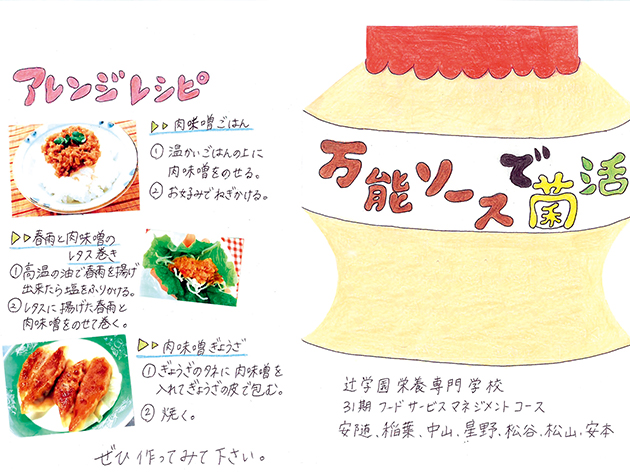 アレンジレシピ
▷▷肉味噌ごはん
① 温かいごはんの上に
肉味噌をのせる。
② お好みでねぎかける。
▷▷春雨と肉味噌の
レタス巻き
①高温の油で春雨を揚げ
出来たら塩をふりかける。
②レタスに揚げた春雨と
肉味噌をのせて巻く。
▷▷肉味噌ぎょうざ
①ぎょうざのタネに肉味噌を
入れてぎょうざの皮で包む。
② 焼く。
ぜひ作ってみて下さい。
万能ソースで菌活
辻学園栄養専門学校
31期 フードサービスマネジメントコース
安随、稲葉、中山、星野、松谷、松山、安本